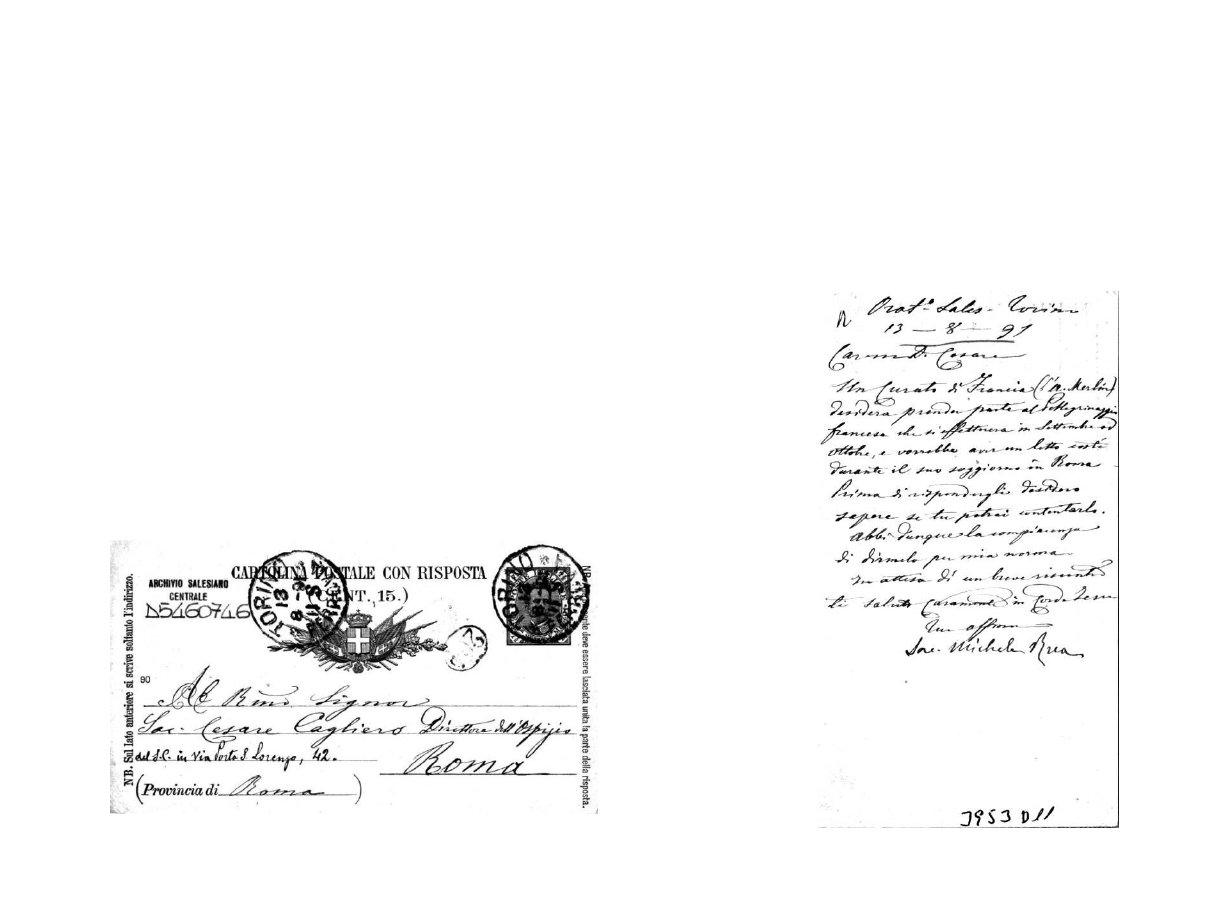 CARTOLINA POSTALE CON RISPOSTA
(CENT. 15.)
ARCHIVIO SALESIANO
CENTRALE
D5460746
TORINO
13
8-91
TORINO
NB. Sul lato anteriore si scrive soltanto l'indirizzo.
deve essere lasciata unita la parte della risposta.
90
Al Rmo Signor
Sac. Cesare Cagliero Direttore dell'Ospizio
del S.C. in Via Porta S Lorenzo, 42.
Roma
(Provincia di Roma)
Orat.o Sales. Torino
13 - 8 - 91
Car.mo D. Cesare
Un Curato di Francia (l'a. Merlin)
desidera prender parte al Pellegrinaggio
francese che si effettuerà in Settembre od
ottobre, e vorrebbe aver un letto costì
durante il suo soggiorno in Roma
Prima di rispondergli desidero
sapere se tu potrai contentarlo.
Abbi dunque la compiacenza
di dirmelo per mia norma.
In attesa di un breve riscontro
ti saluto caramente in Corde Jesu
Tuo aff.mo
Sac. Michele Rua
3953 D11